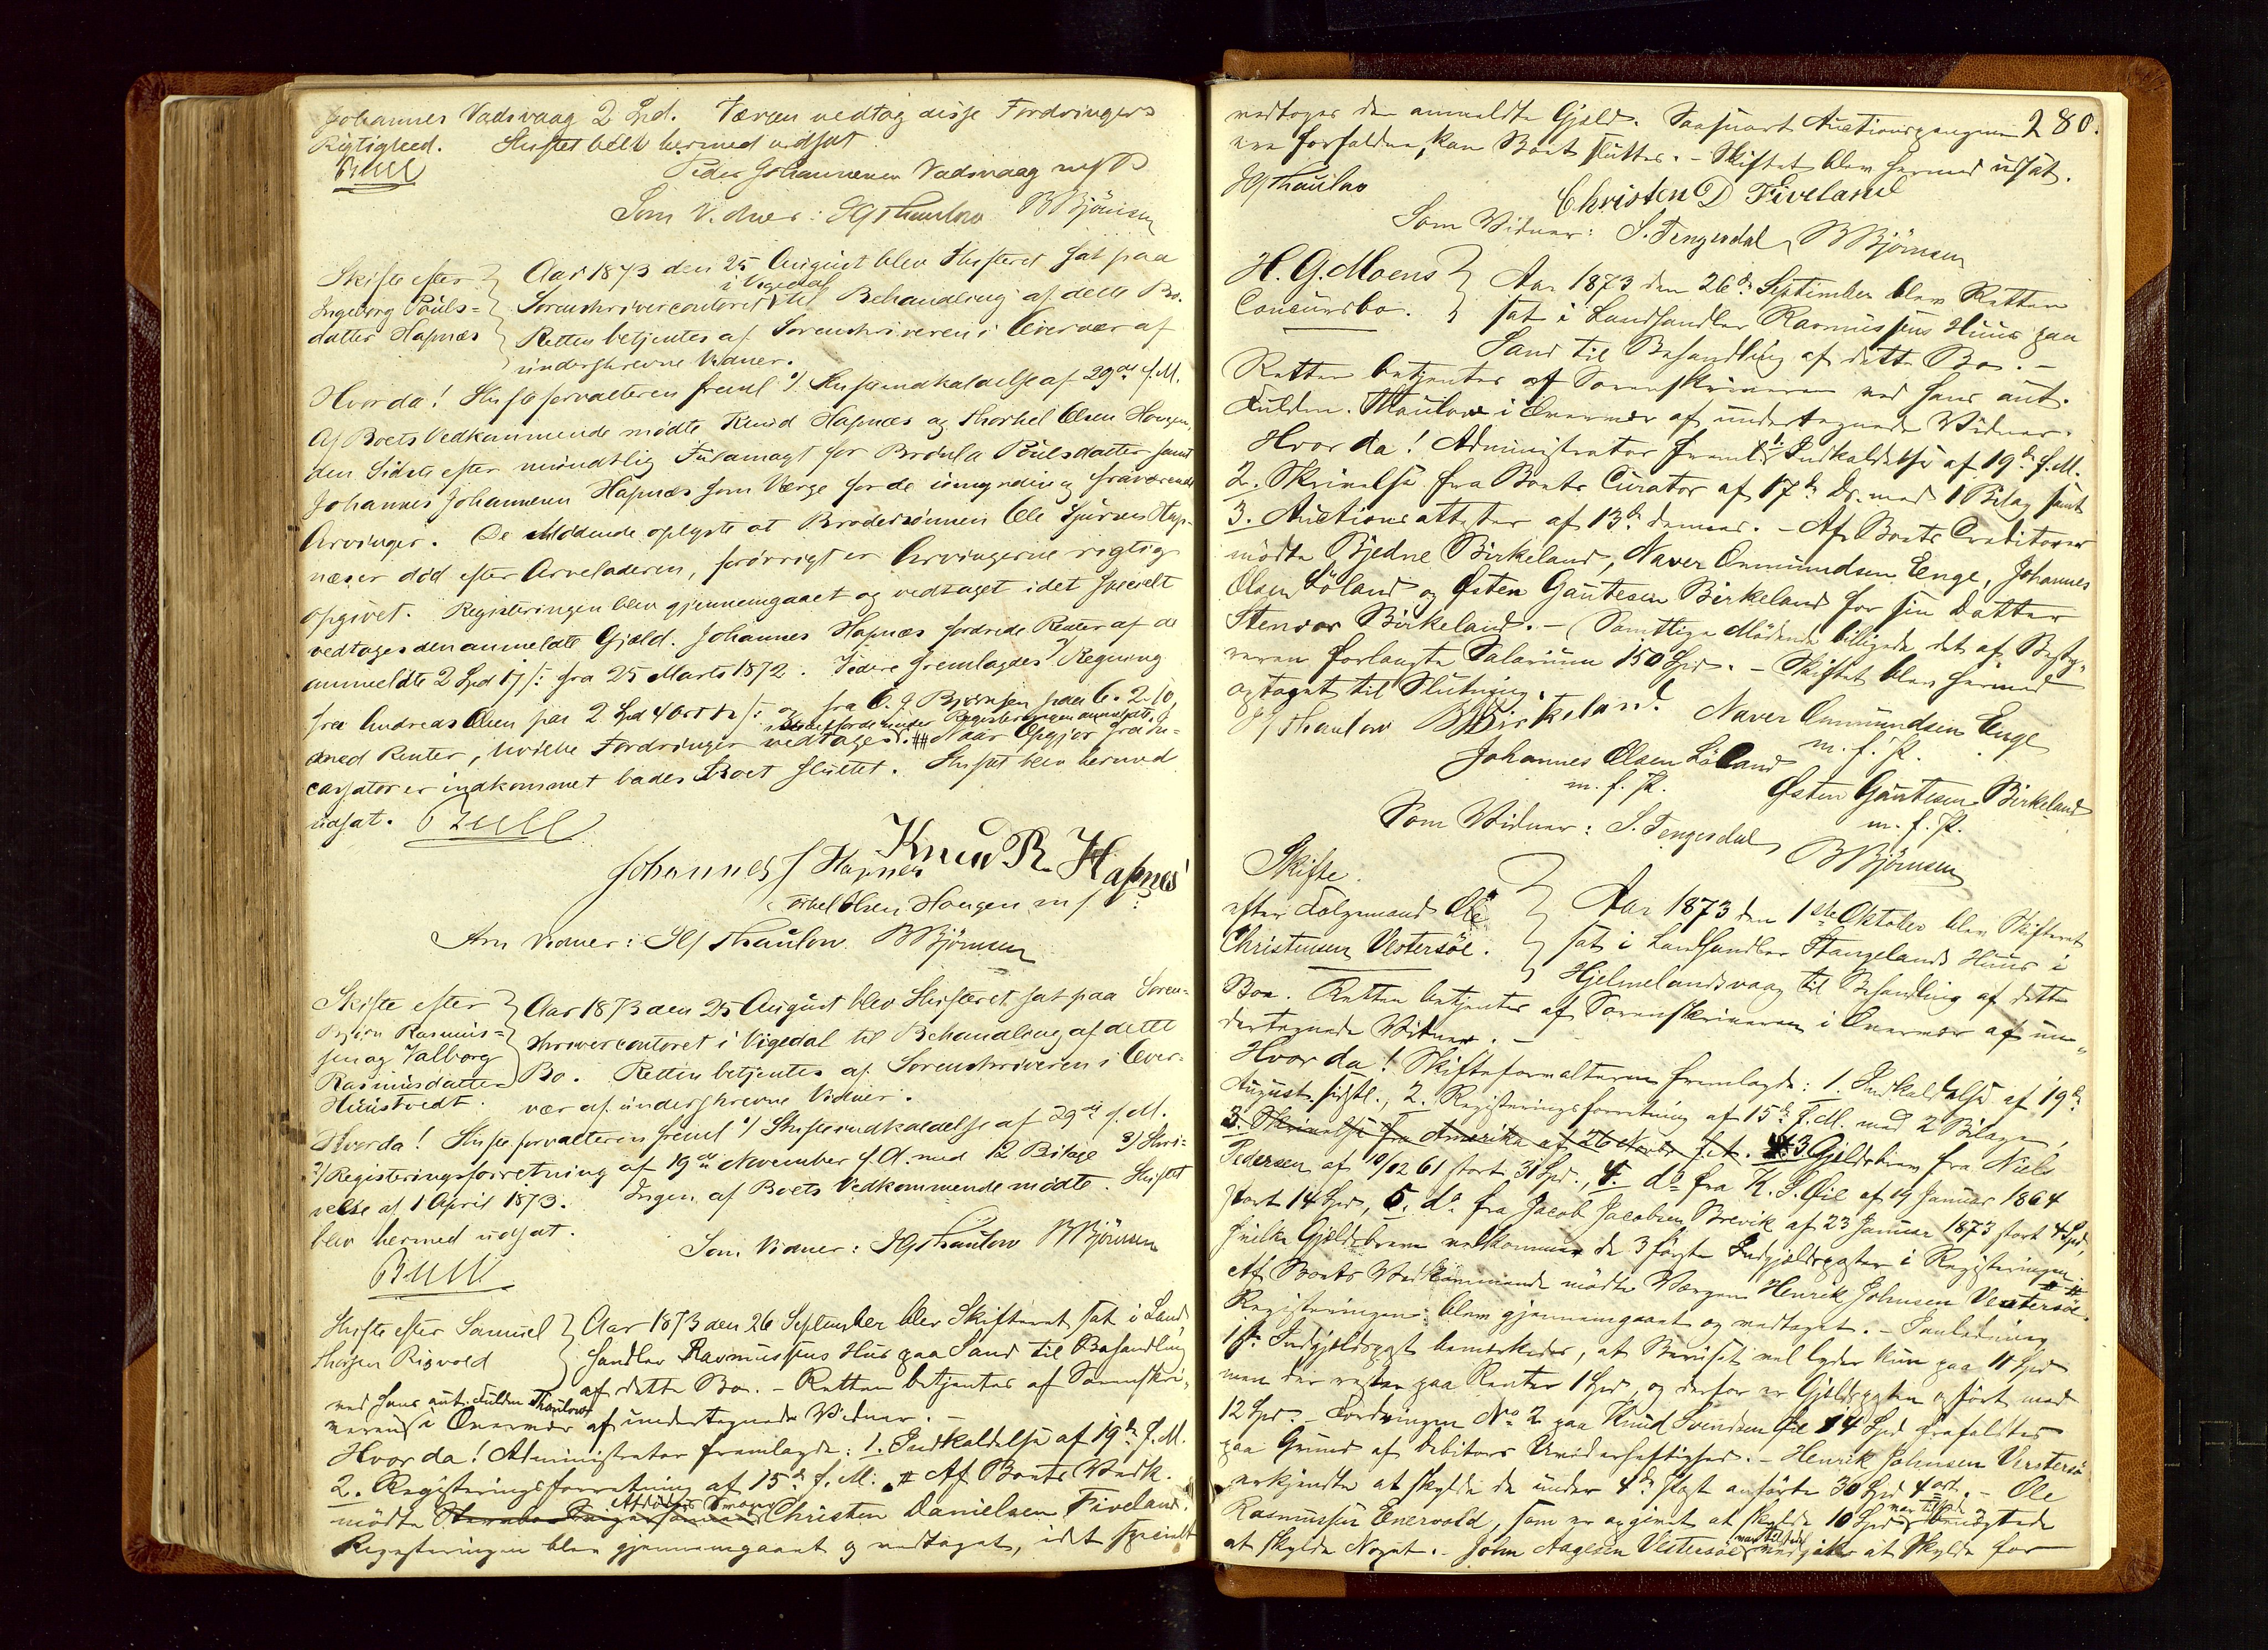 Johannes Vadsvaag 2 Spd. Værgen vedtog disse Fordringers
Rigtighed. Skiftet blev hermed udsat.
Bull
Peder Johannesen Vadsvaag mfP
Som Vidner: HG Thaulow BBjörnsen
Skifte efter
Ingeborg Pouls=
datter Hapnæs
Aar 1873 den 25 August blev Skifteret sat paa
Sorenskrivercontoret i Vigedal til Behandling af dette Bo.
Retten betjentes af Sorenskriveren i Overvær af
underskrevne Vidner.
Hvorda! Skifteforvalteren freml 1/ Skifteindkaldelse af 29de f.M.
Af Boets Vedkommende mødte Knud Hapnæs og Thorkel Olsen Hougen,
den Sidste efter mundtlig Fuldmagt for Brønla Poulsdatter samt
Johannes Johannesen Hapnæs som Værge for de umyndige fraværende
Arvinger. De Mødende oplyste at Brodersønnen Ole Sjursen Hap-
næs er død efter Arveladeren, forøvrigt er Arvingerne rigtig
opgivet. Registeringen blev gjennemgaaet og vedtaget idet specielt
vedtages den anmeldte Gjæld. Johannes Hapnæs fordrede Renter af de
anmeldte 2 Spd 17 /: fra 25 Marts 1872. Videre fremlagdes Regning
fra Andreas Olsen paa 2 Spd 4 Ort
fra O. J. Bjørnsen paa 6. 2. 10,
med Renter, hvilke Fordringer vedtages. Naar Opgjør fra In-
cassator er indkommet bades Boet sluttet. Skiftet blev hermed
udsat. Bull
Knud R. Hapnes
Johannes J Hapnes
Torkel Olsen Hougen m f P:
Som Vidner: HG Thaulow BBjörnsen
Skifte efter
Bjørn Rasmus=
sen og Valborg
Rasmusdatter
Huustvedt.
Aar 1873 den 25 August blev Skifteret sat paa Soren-
skrivercontoret i Vigedal til Behandling af dette
Bo. Retten betjentes af Sorenskriveren i Over-
vær af underskrevne Vidner.
Hvorda! Skifteforvalteren freml 1/ Skifteindkaldelse af 29de f.M.
2/ Registeringsforretning af 19de November f.A. med 12 Bilage 3/ Skri-
velse af 1 April 1873. Ingen af Boets Vedkommende mødte. Skiftet
blev hermed udsat.
Som Vidner: HG Thaulow BBjörnsen
Bull
Skifte efter Samuel
Thorsen Risvold
Aar 1873 den 26 September blev Skifteret sat i Land
handler Rasmussens Hus paa Sand til Behandling
af dette Bo. - Retten betjentes af Sorenskri-
ved hans aut. Fuldm Thaulow
veren i Overvær af undertegnede Vidner. -
Hvor da! Administrator fremlagde: 1. Indkaldelse af 19de f.M.
2. Registeringsforretning af 15de f.M. Af Boets Vedk.
mødte Christen Danielsen Fiveland.
Registeringen blev gjennemgaaet og vedtaget, idet specielt
280.
vedtoges den anmeldte Gjæld. Saasnart Auctionspengene
ere forfaldne, kan Boet sluttes. - Skiftet blev hermed udsat.
HG Thaulow
Christen D Fiveland
Som Vidner: S. Tengesdal BBjörnsen
H. G. Moens
Concursbo.
Aar 1873 den 26de September blev Retten
sat i Landhandler Rasmussens Huus paa
Sand til Behandling af dette Bo. -
Retten betjentes af Sorenskriveren ved hans aut.
Fuldm. Thaulow i Overvær af undertegnede Vidner.
Hvor da! Administrator freml. 1. Indkaldelse af 19de f.M.
2. Skrivelse fra Boets Curator af 17de ds. med 1 Bilag samt
3. Auctionsattester af 13de dennes. - Af Boets Creditorer
mødte Bjedne Birkeland, Naver Onmundsen Enge, Johannes
Olsen Löland og Østen Gautesen Birkeland for sin Datter
Stenvor Birkeland. - Samtlige Mødende billigede det af Besty-
reren forlangte Salarium 150 Spd. - Skiftet blev hermed
optaget til Slutning.
HG Thaulow BBirkeland Naver Onmundsen Enge
m. f. P.
Johannes Olsen Löland
m. f. P.
Østen Gautesen Birkeland
m. f. P.
Som Vidner: S. Tengesdal BBjörnsen
Skifte
efter Folgemand Ole
Christensen Vestersöe.
Aar 1873 den 1ste Oktober blev Skifteret
sat i Landhandler Stangelands Huus i
Hjelmelandsvaag til Behandling af dette
Bo. Retten betjentes af Sorenskriveren i Overvær af un-
dertegnede Vidner. -
Hvor da! Skifteforvalteren fremlagde: 1. Indkaldelse af 19de
August sidstl., 2. Registeringsforretning af 15de f.M. med 2 Bilage,
3. Skrivelse fra Amerika af 26 Novbr f.A. 3 Gjeldsbrev fra Niels
Pedersen af 10/12 61 stort 31 Spd., 4. do fra K. S. Øie af 19 Januar 1864
stort 14 Spd, 5. do fra Jacob Jacobsen Brevik af 23 Januar 1873 stort 4 Spd,
hvilke Gjældsbreve vedkommer de 3 første Indgjældsposter i Registeringen.
Af Boets Vedkommende mødte Værgen Henrik Johnsen Vestersöe.
Registeringen blev gjennemgaaet og vedtaget. - I Anledning
1ste Indgjeldspost bemærkedes, at Beviset vel lyder kun paa 11 Spd
men der rester paa Renter 1 Spd, og derfor er Gjeldsposten opført med
12 Spd. - Fordringen No 2 paa Knud Svendsen Øie 14 Spd frafaldtes
paa Grund af Debitors Uvederheftighed. - Henrik Johnsen Vestersö
erkjendte at skylde de under 4de Post anførte 30 Spd 4 ort. - Ole
Rasmussen Enervold, som er opgivet at skylde 10 Spd var tilstede benegtede
at skylde Noget. - John Aagesen Vestersöe var tilstede vedgik at skylde for